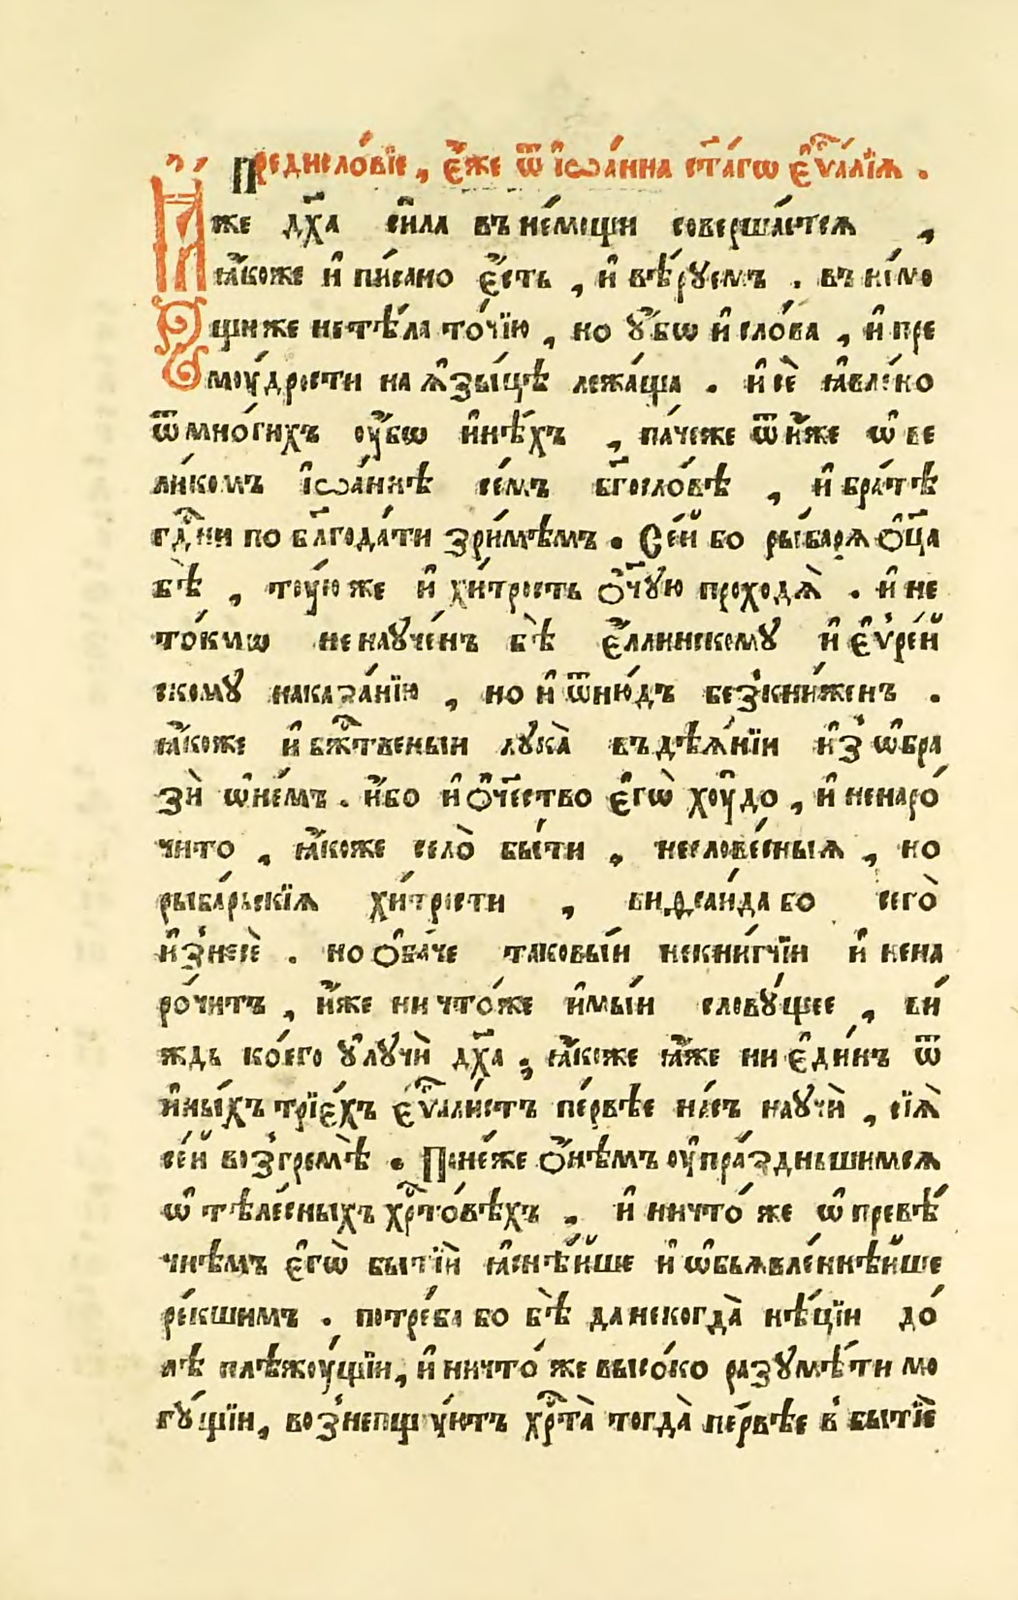 Предисло́вїе, є҆́же ѿ і҆ѡа́нна ст҃а́гѡ є҆ѵⷢ҇а́лїѧ.
И҆́же дх҃а си́ла въ не́мощи соверша́етсѧ,
ꙗ҆́коже и҆ пи́сано є҆́сть, и҆ вѣ́руемъ. въ не́мо
щи же не тѣ́ла то́чїю, но ᲂу҆́бѡ и҆ сло́ва, и҆ пре
моу́дрости на ѧ҆зы́цѣ лежа́ща. и҆ сѐ ꙗ҆вле́но
ѿ мно́гихъ ᲂу҆́бѡ и҆нѣ́хъ, па́чеже ѿ и҆́же ѡ҆ ве
ли́комъ і҆ѡа́ннѣ се́мъ бг҃осло́вѣ, и҆ бра́тѣ
гдⷭ҇ни по блⷢ҇года́ти зри́мѣмъ. Се́й бо ры́барѧ ѻ҆ц҃а
бѣ̀, тоу́юже и҆ хи́трость ѻ҆́ч҃ую проходѧ̀. и҆ не
то́кмѡ не науче́нъ бѣ̀ є҆́ллинскому и҆ є҆ѵре́й
скому наказа́нїю, но и҆ ѿню́дъ безкни́женъ.
ꙗ҆́коже и҆ бжⷭ҇твеныи лꙋка̀ въ дѣѧ́нїи и҆з̾ ѡ҆бра
зѝ ѡ҆ не́мъ. и҆́бо и҆ ѻ҆ч҃ество є҆гѡ̀ хоу́до, и҆ ненаро́
чито, ꙗ҆́коже село̀ бы́ти, несловéсныѧ, но
рыба́рьскїѧ хи́трости, виѳсаи́да бо сего̀
и҆знесѐ. но ѻ҆ба́че таковы́и некни́гчїи и҆ нена
ро́читъ, и҆́же ничто́же и҆мы́и слову́щее, ви́
ждь ко́его ᲂу҆лучѝ дх҃а, ꙗ҆́коже ꙗ҆̀же ни є҆ди́нъ ѿ
и҆ны́хъ трїе́хъ є҆ѵⷢ҇али́стъ пе́рвѣе на́съ научѝ, сїѧ̀
се́й возгремѣ̀. Поне́же ѻ҆нѣ́мъ ᲂу҆пра́здньшимсѧ
ѡ҆ тѣле́сныхъ хрⷭ҇то́вѣхъ, и҆ ничто́ же ѡ҆ превѣ́
чнѣмъ є҆гѡ̀ бытїѝ ꙗ҆снѣ́йше и҆ ѡ҆бьѧвле́ннѣйше
ре́кшимъ. потре́ба бо бѣ̀ да некогда̀ нѣ́цїи до́
лѣ плѣжоу́щїи, и҆ ничто́ же высо́ко разумѣ́ти мо
гу́щїи, вознепщу́ютъ хрⷭ҇та̀ тогда̀ пе́рвѣе в̾ бытїѐ